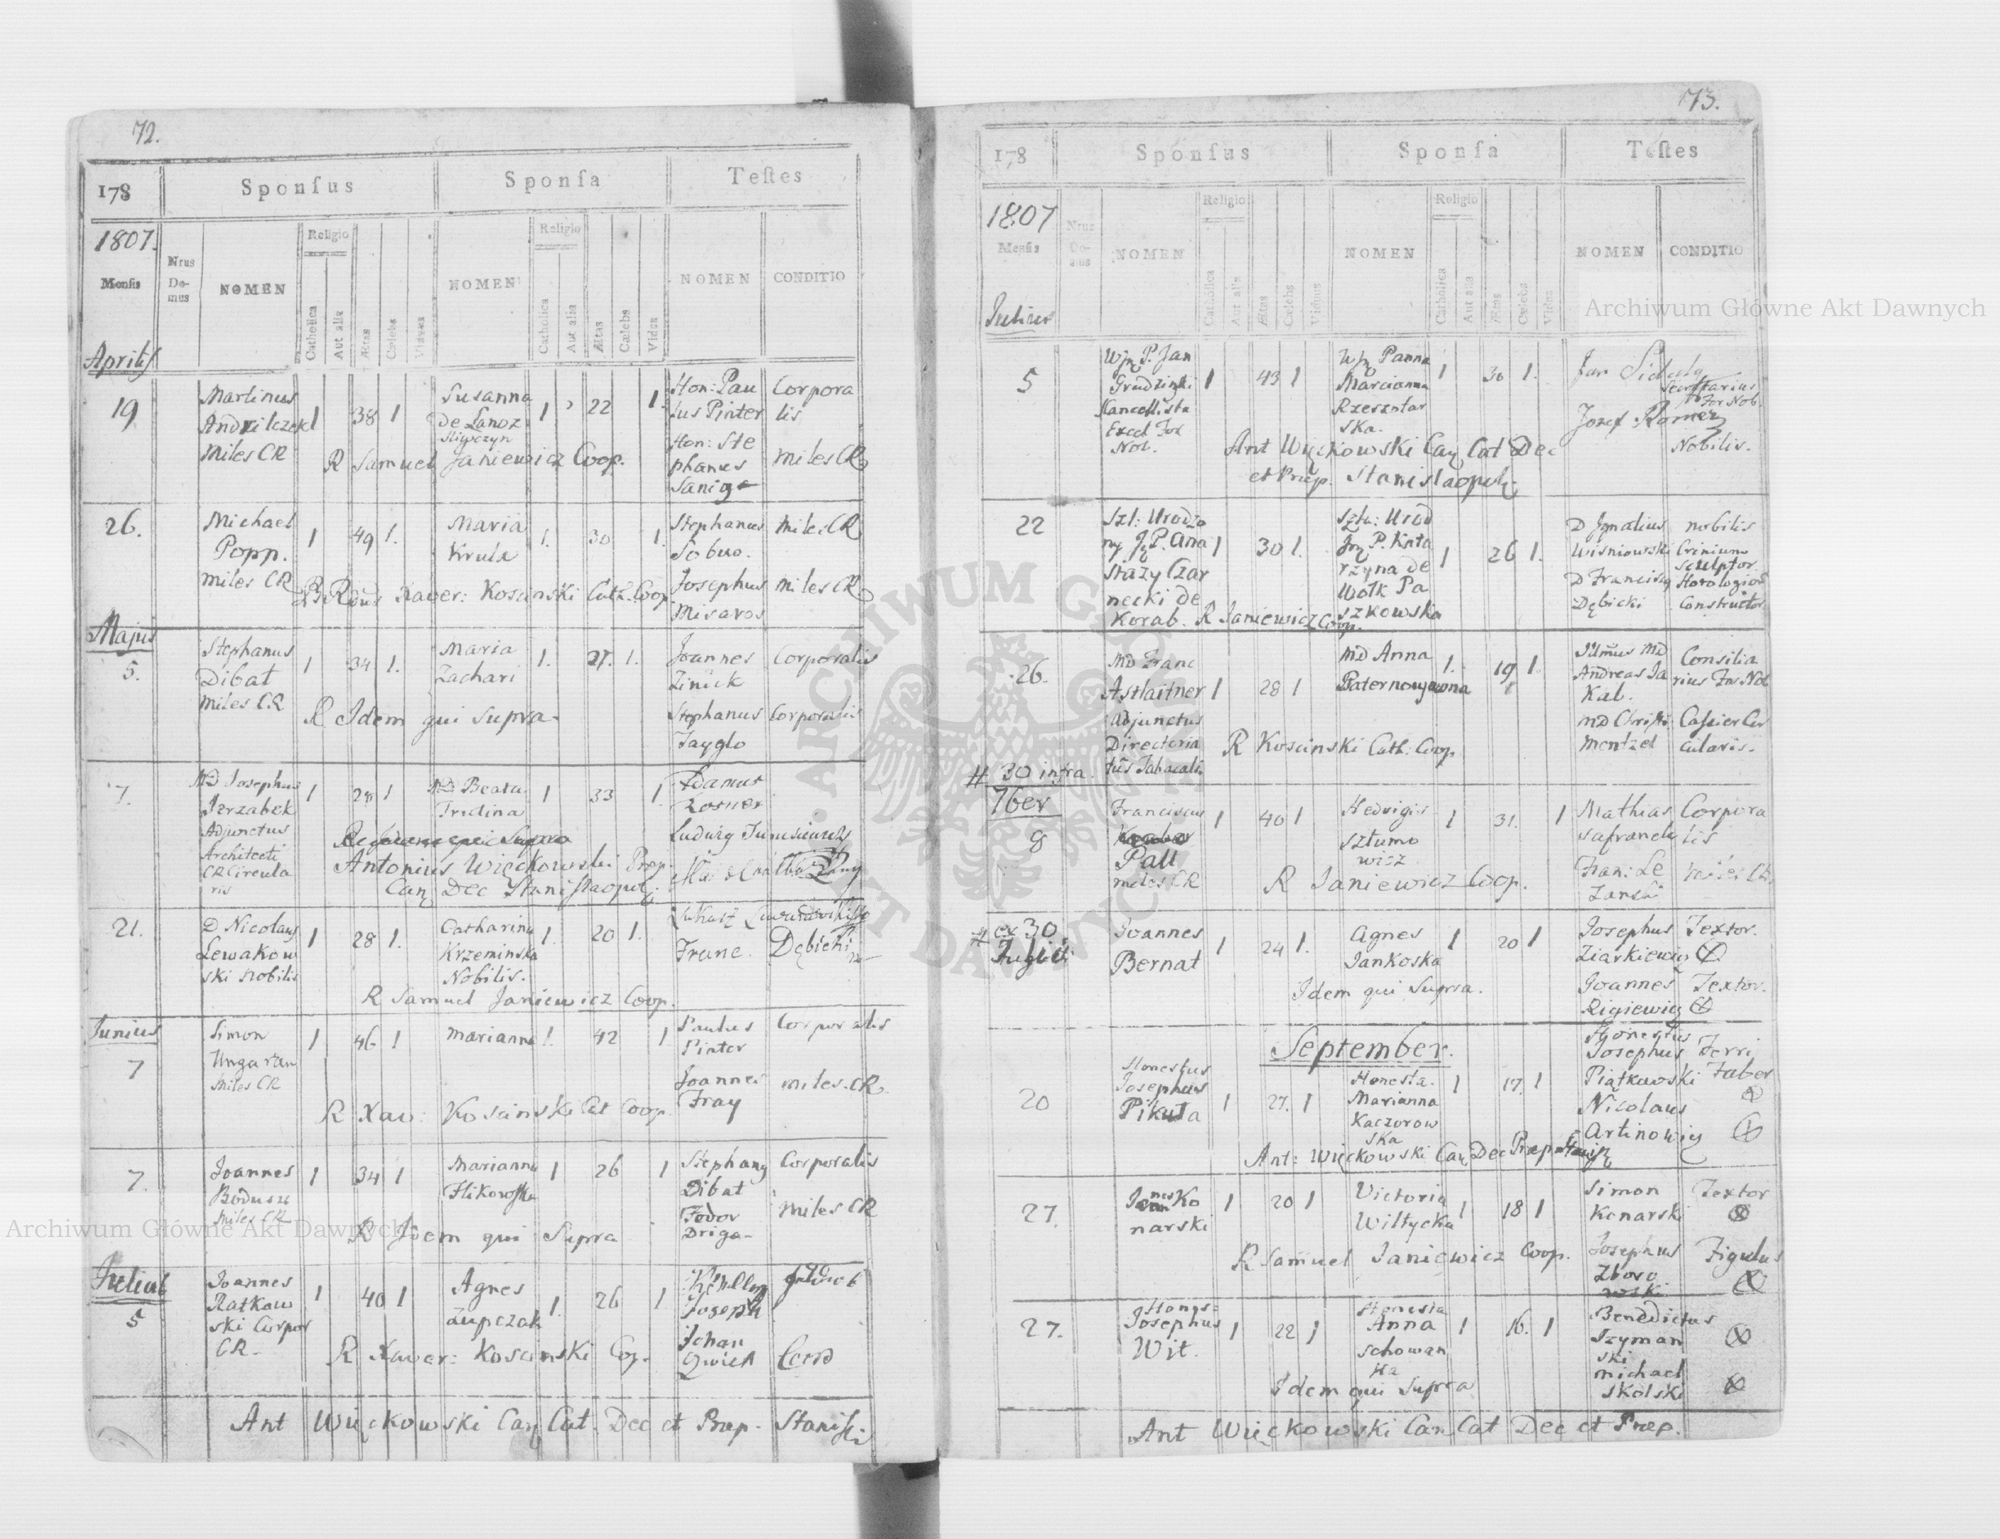 72.
178
Sponsus
Sponsa
Testes
1807.
Mensis
Nrus Domus
NOMEN
Religio
Catholica
Aut alia
Ætas
Cælebs
Viduus
NOMEN
Religio
Catholica
Aut alia
Ætas
Cælebs
Vidua
NOMEN
CONDITIO
Aprilis
19
Martinus
Andrilczek 1 38 1
Miles CR
Susanna
De Lanoz 1 22 1.
R Samuel Janiewicz Coop.
Hon: Pau
lus Pinter
Corpora
lis
Hon: Ste
phanus
miles CR
26.
Michael
Popp. 1 49 1.
miles CR
Maria
Krula 1. 30 1.
Xaver: Kosinski Cath. Coop
Stephanus
miles CR
Josephus
Misaros
miles CR
Majus
5.
Stephanus
Dibat 1 34 1.
miles CR
Maria
Zachari 1. 27. 1.
R Idem qui Supra
Joannes
Zinick
Corporalis
Stephanus
Fayglo
Corporalis
7.
MD Josephus
Jerzabek 1 28 1
Adjunctus
Architecti
CR Circula
ris
MD Beata
Fridina 1 33 1.
Antonius Więckowski Prep.
Can Dec Stanislaopol.
Adamus
Rosner
Ludwig
21.
D Nicolaus
Lewakow 1 28 1.
ski Nobilis
Catharina
Krzeminska 1. 20 1.
Nobilis.
R Samuel Janiewicz Coop.
Łukasz
Franc. Dębicki
Junius
7
Simon
Ungarian 1 46 1
miles CR
Marianna 1. 42 1
R Xav: Kosinski Cat Coop.
Paulus
Pinter
Corporalis
Joannes
Fray
miles CR
7.
Joannes 1 34 1
miles CR
Marianna 1 26 1
R Idem qui Supra
Stephany
Dibat
Corporalis
Fodor
Driga
miles CR
Julius
5
Joannes
Ratkow 1 40 1
ski Corpor
CR.
Agnes
Zupczak 1. 26 1
R Xaver: Kosinski Coop.
Joseph
Johan
Ant Więckowski Can Cat. Dec et Præp. Stanisl
73.
178
Sponsus
Sponsa
Testes
1807
Mensis
Nrus Domus
NOMEN
Religio
Catholica
Aut alia
Ætas
Cælebs
Viduus
NOMEN
Religio
Catholica
Aut alia
Ætas
Cælebs
Vidua
NOMEN
CONDITIO
Julius
5
Wjp P. Jan
Grudzinski 1 43 1
Kancellista
Excel For
Nob.
Wjp Panna
Marcianna 1 30 1.
Rzeszotar
ska.
Ant Więckowski Can Cat Dec
et Præp. Stanislaopoli
Jan
Secretarius
For Nob.
Jozef Romer
Nobilis.
22
Szl: Urodzo
ny Jp P. Ana 1 30 1.
stazy Czar
necki de
Korab.
Szla: Urod
Jp P. Kata
rzyna de 1 26 1.
Wołk Pa
szkowska
R Janiewicz Coop.
D Ignatius
Wisniowski
nobilis
sculptor
D Francisq
Dębicki
Horologior
Constructor
26.
MD Franc
Astlaitner 1 28 1
Adjunctus
Directoria
tus Tabacalis
MD Anna 1. 19 1.
R Kosinski Cath: Coop.
Illmus MD
Andreas
Consilia
rius For Nob
MD Christ:
Mentzel
Cassier Cir
cularis.
# 30 infra.
7ber
8
Franciscus 1 40 1
Pall
miles CR
Hedvigis 1 31. 1
Sztumo
wicz
R Janiewicz Coop.
Mathias
Safranek
Corpora
lis
Fran: Le
miles CR
# ex 30
Julii
Joannes
Bernat 1 24 1.
Agnes 1 20 1
Jankoska
Idem qui Supra.
Josephus
Ziarkiewicz
Textor.
Joannes
Rigiewicz
Textor.
September.
20
Honestus
Josephus
Pikuła 1 27. 1
Honesta
Marianna 1 17. 1
Kaczorow
ska
Ant: Więckowski Can Dec Præp
Honestus
Josephus
Piątkowski
Ferri
Faber
Nicolaus
Artinowicz
27.
Ko
narski 1 20 1
Victoria
Wiltycka 1 18 1
R Samuel Janiewicz Coop.
Simon
Konarski
Textor
Josephus
Zboro
wski
Figulus
27.
Hones:
Josephus 1 22 1
Wit.
Honesta
Anna 1 16. 1
Schowan
ka
Idem qui Supra
Benedictus
Szyman
ski
Michael
Skolski
Ant Więckowski Can Cat Dec et Præp.
Archiwum Główne Akt Dawnych
Archiwum Główne Akt Dawnych
ARCHIWUM GŁÓWNE AKT DAWNYCH